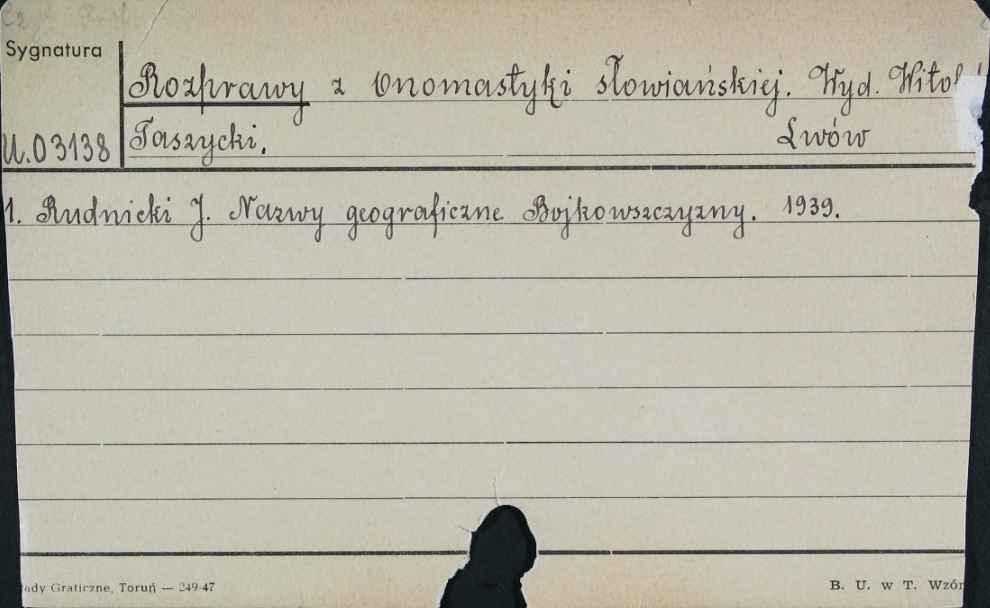 Sygnatura
Rozprawy z onomastyki słowiańskiej. Wyd. Witol
U.03138 Taszycki. Lwów
1. Rudnicki J. Nazwy geograficzne Bojkowszczyzny. 1939.
ady Graficzne, Toruń — 249-47 B. U. w T. Wzór